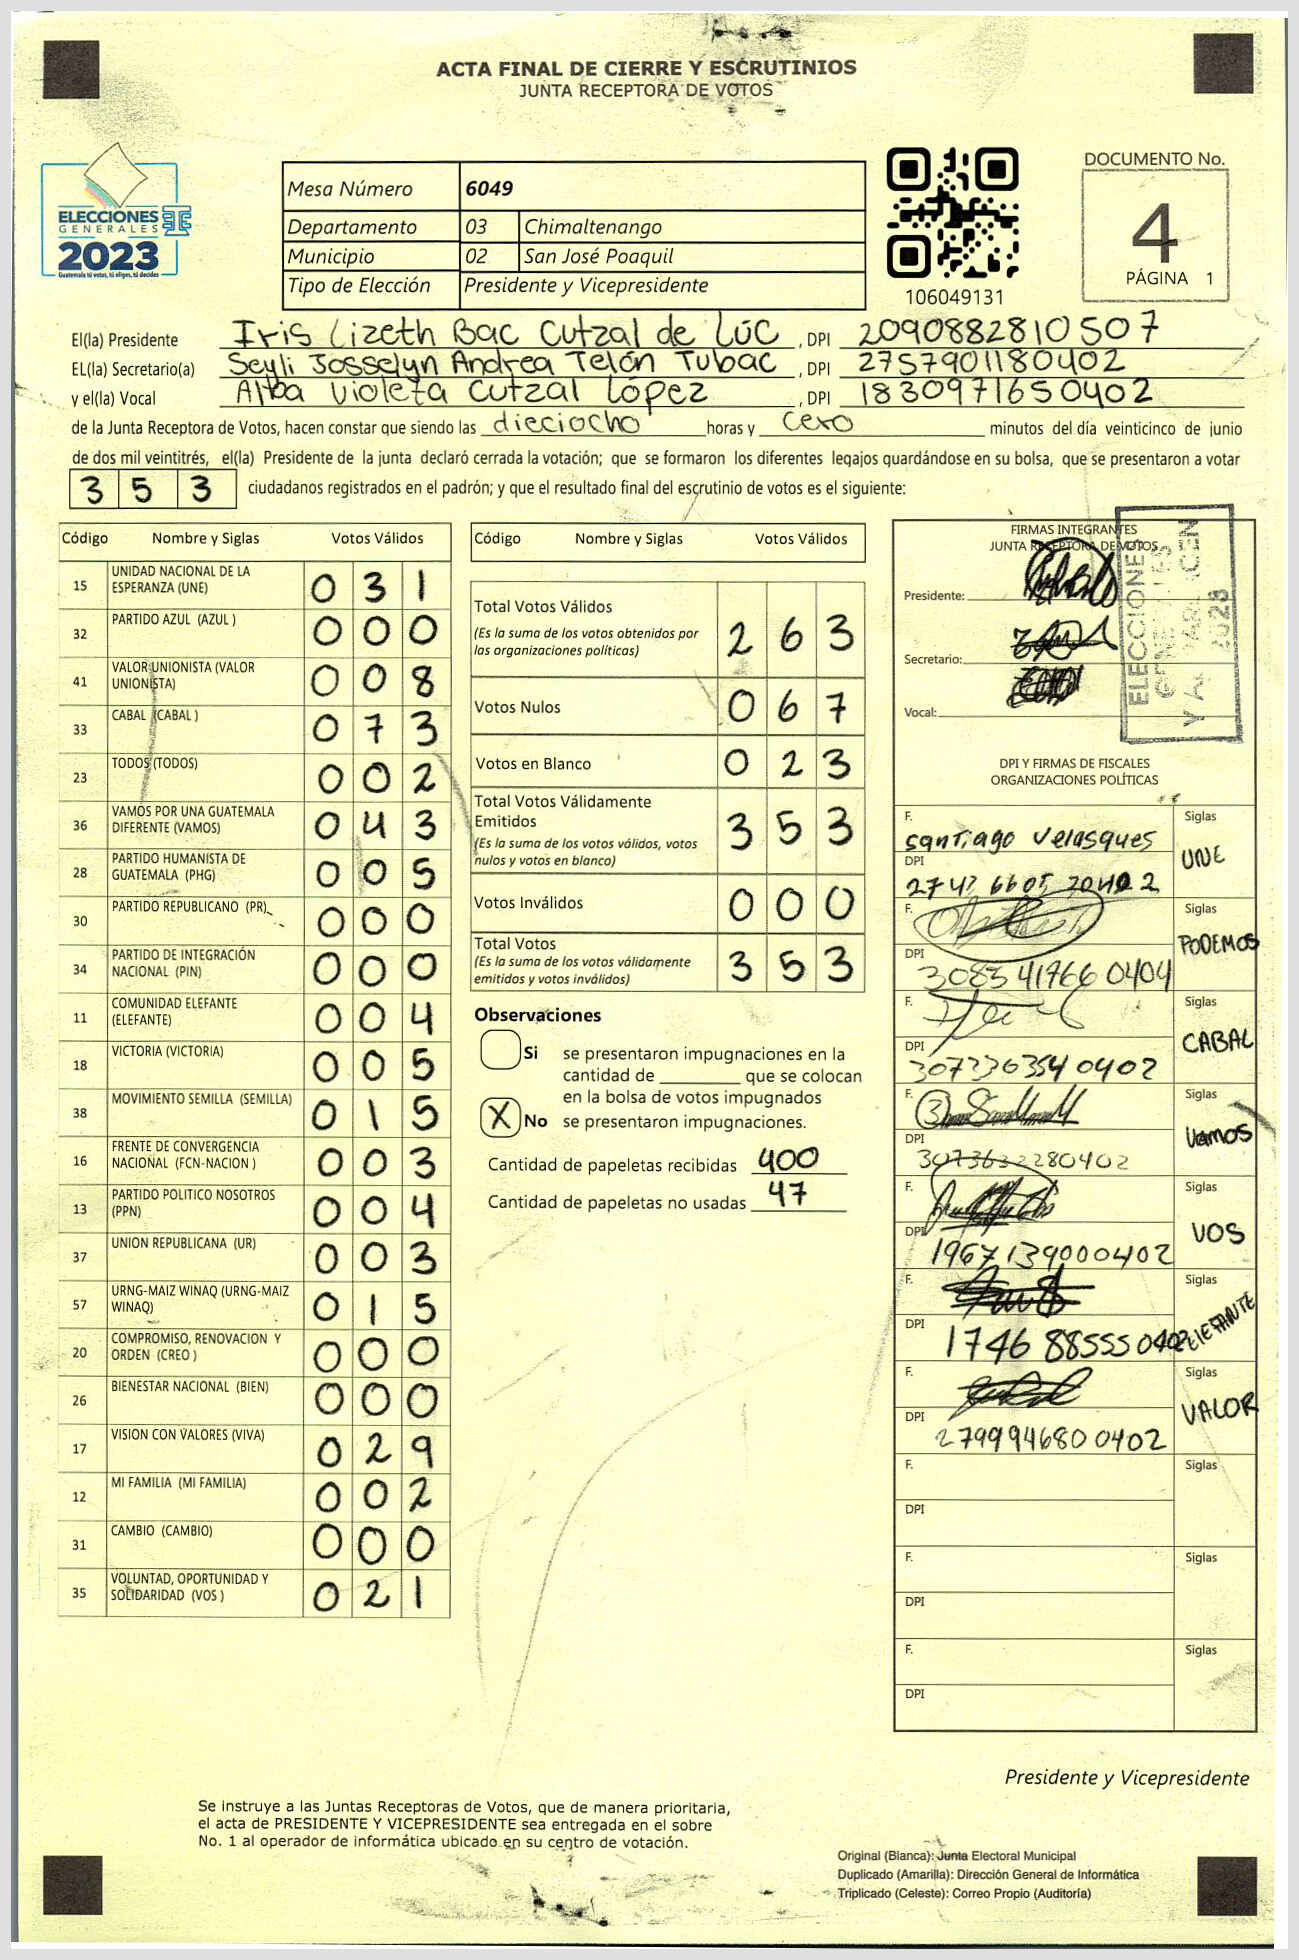 ACTA FINAL DE CIERRE Y ESCRUTINIOS
JUNTA RECEPTORA DE VOTOS
ELECCIONES
GENERALES
2023
Guatemala tú votas, tú eliges, tú decides
Mesa Número 6049
Departamento 03 Chimaltenango
Municipio 02 San José Poaquil
Tipo de Elección Presidente y Vicepresidente
106049131
DOCUMENTO No.
4
PÁGINA 1
El(la) Presidente Iris Lizeth Bac Cutzal de Lúc, DPI 2090882810507
EL(la) Secretario(a) Seyli Josselyn Andrea Telón Tubac, DPI 2757901180402
y el(la) Vocal Alba Violeta Cutzal López, DPI 1830971650402
de la Junta Receptora de Votos, hacen constar que siendo las dieciocho horas y cero minutos del día veinticinco de junio
de dos mil veintitrés, el(la) Presidente de la junta declaró cerrada la votación; que se formaron los diferentes legajos quardándose en su bolsa, que se presentaron a votar
3 5 3 ciudadanos registrados en el padrón; y que el resultado final del escrutinio de votos es el siguiente:
Código Nombre y Siglas Votos Válidos
15 UNIDAD NACIONAL DE LA ESPERANZA (UNE) 0 3 1
32 PARTIDO AZUL (AZUL ) 0 0 0
41 VALOR UNIONISTA (VALOR UNIONISTA) 0 0 8
33 CABAL (CABAL ) 0 7 3
23 TODOS (TODOS) 0 0 2
36 VAMOS POR UNA GUATEMALA DIFERENTE (VAMOS) 0 4 3
28 PARTIDO HUMANISTA DE GUATEMALA (PHG) 0 0 5
30 PARTIDO REPUBLICANO (PR) 0 0 0
34 PARTIDO DE INTEGRACIÓN NACIONAL (PIN) 0 0 0
11 COMUNIDAD ELEFANTE (ELEFANTE) 0 0 4
18 VICTORIA (VICTORIA) 0 0 5
38 MOVIMIENTO SEMILLA (SEMILLA) 0 1 5
16 FRENTE DE CONVERGENCIA NACIONAL (FCN-NACION ) 0 0 3
13 PARTIDO POLITICO NOSOTROS (PPN) 0 0 4
37 UNION REPUBLICANA (UR) 0 0 3
57 URNG-MAIZ WINAQ (URNG-MAIZ WINAQ) 0 1 5
20 COMPROMISO, RENOVACION Y ORDEN (CREO ) 0 0 0
26 BIENESTAR NACIONAL (BIEN) 0 0 0
17 VISION CON VALORES (VIVA) 0 2 9
12 MI FAMILIA (MI FAMILIA) 0 0 2
31 CAMBIO (CAMBIO) 0 0 0
35 VOLUNTAD, OPORTUNIDAD Y SOLIDARIDAD (VOS ) 0 2 1
Código Nombre y Siglas Votos Válidos
Total Votos Válidos 2 6 3
(Es la suma de los votos obtenidos por
las organizaciones políticas)
Votos Nulos 0 6 7
Votos en Blanco 0 2 3
Total Votos Válidamente
Emitidos 3 5 3
(Es la suma de los votos válidos, votos
nulos y votos en blanco)
Votos Inválidos 0 0 0
Total Votos 3 5 3
(Es la suma de los votos válidamente
emitidos y votos inválidos)
Observaciones
Si se presentaron impugnaciones en la
cantidad de ________ que se colocan
en la bolsa de votos impugnados
X No se presentaron impugnaciones.
Cantidad de papeletas recibidas 400
Cantidad de papeletas no usadas 47
FIRMAS INTEGRANTES
JUNTA RECEPTORA DE VOTOS
Presidente:
Secretario:
Vocal:
ELECCIONES
2023
DPI Y FIRMAS DE FISCALES
ORGANIZACIONES POLÍTICAS
F. Santiago Velasques Siglas UNE
DPI
F. Siglas PODEMOS
DPI 3083419660404
F. Siglas CABAL
DPI 3072363540402
F. Siglas Vamos
DPI 3073632280402
F. Siglas VOS
DPI 1967139000402
F. Siglas ELEFANTE
DPI 1746885550402
F. Siglas VALOR
DPI 2799946800402
F. Siglas
DPI
F. Siglas
DPI
F. Siglas
DPI
Presidente y Vicepresidente
Se instruye a las Juntas Receptoras de Votos, que de manera prioritaria,
el acta de PRESIDENTE Y VICEPRESIDENTE sea entregada en el sobre
No. 1 al operador de informática ubicado en su centro de votación.
Original (Blanca): Junta Electoral Municipal
Duplicado (Amarilla): Dirección General de Informática
Triplicado (Celeste): Correo Propio (Auditoría)